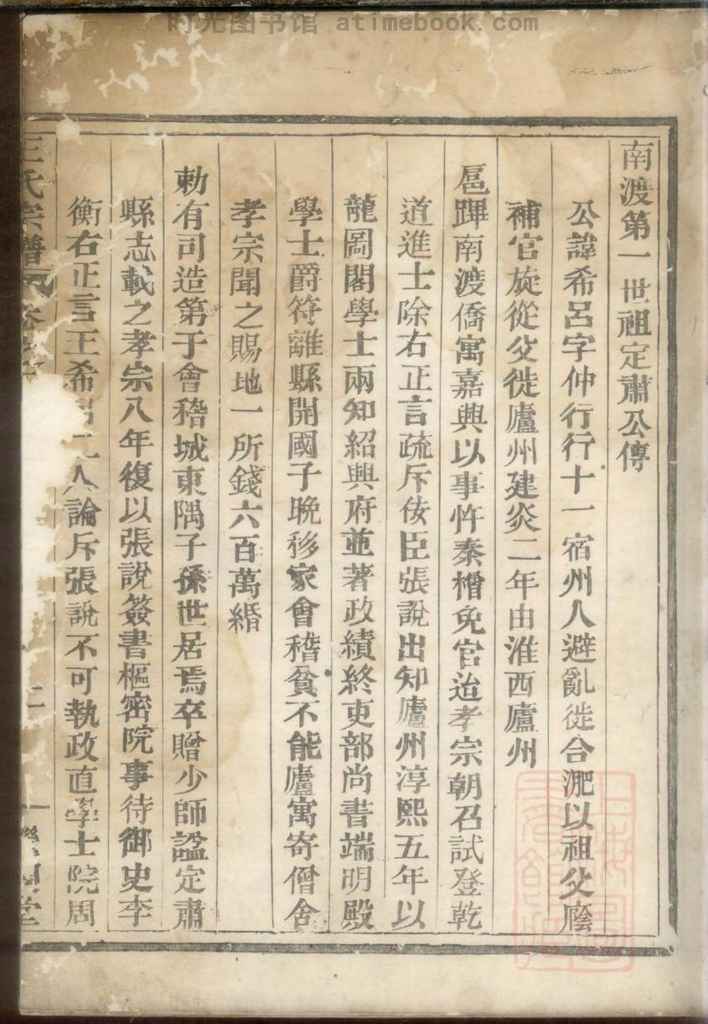 时光图书馆 atimebook.com
南渡第一世祖定肅公傳
公諱希呂字仲行行十一宿州人避亂徙合淝以祖父廕
補官旋從父徙廬州建炎二年由淮西廬州
扈蹕南渡僑寓嘉興以事忤秦檜免官迨孝宗朝召試登乾
道進士除右正言疏斥佞臣張說出知廬州淳熙五年以
龍圖閣學士兩知紹興府並著政績終吏部尚書端明殿
學士爵符離縣開國子晚移家會稽貧不能廬寓寄僧舍
孝宗聞之賜地一所錢六百萬緡
勅有司造第于會稽城東隅子孫世居焉卒贈少師諡定肅
縣志載之孝宗八年復以張說簽書樞密院事待御史李
衡右正言王希呂二人論斥張說不可執政直學士院周
王氏宗譜 二